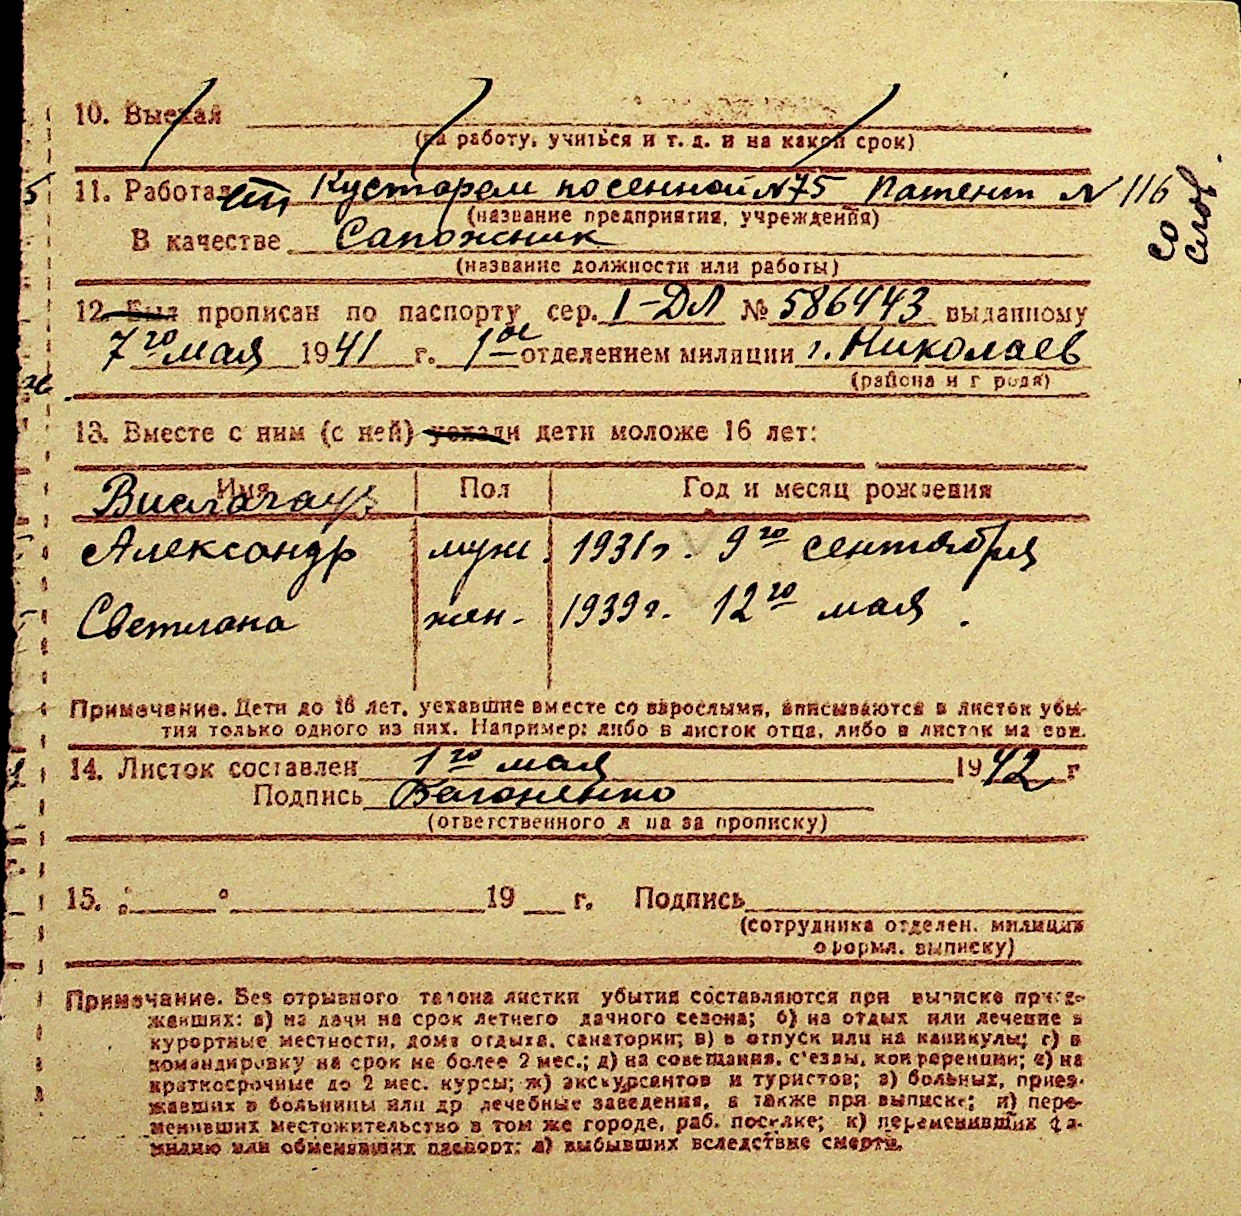 10. Выехал
(на работу, учиться и т. д. и на какой срок)
11. Работает Кустарем по сенной N 75 Патент N 116
(название предприятия, учреждения)
со слов.
В качестве Сапожник
(название должности или работы)
12. Был прописан по паспорту сер. I-ДЛ № 586443 выданному
7го мая 1941 г. 1ое отделением милиции г. Николаев
(района и г рода)
13. Вместе с ним (с ней) уехали дети моложе 16 лет:
Имя Пол Год и месяц рождения
Александр муж. 1931 г. 9го сентября
Светлана жен. 1939 г. 12го мая.
Примечание. Дети до 16 лет, уехавшие вместе со взрослыми, вписываются в листок убы-
тия только одного из них. Например: либо в листок отца, либо в листок матери.
14. Листок составлен 1го мая 1942 г
Подпись
(ответственного л ца за прописку)
15. 19 г. Подпись
(сотрудника отделен. милиции
оформл. выписку)
Примечание. Без отрывного талона листки убытия составляются при выписке приез-
жавших: а) на дачи на срок летнего дачного сезона; б) на отдых или лечение в
курортные местности, дома отдыха, санатории; в) в отпуск или на каникулы; г) в
командировку на срок не более 2 мес.; д) на совещания, с'езды, конференции; е) на
краткосрочные до 2 мес. курсы; ж) экскурсантов и туристов; з) больных, приез-
жавших в больницы или др лечебные заведения, а также при выписке; и) пере-
менивших местожительство в том же городе, раб. поселке; к) переменивших фа-
милию или обменявших паспорт; л) выбывших вследствие смерти.